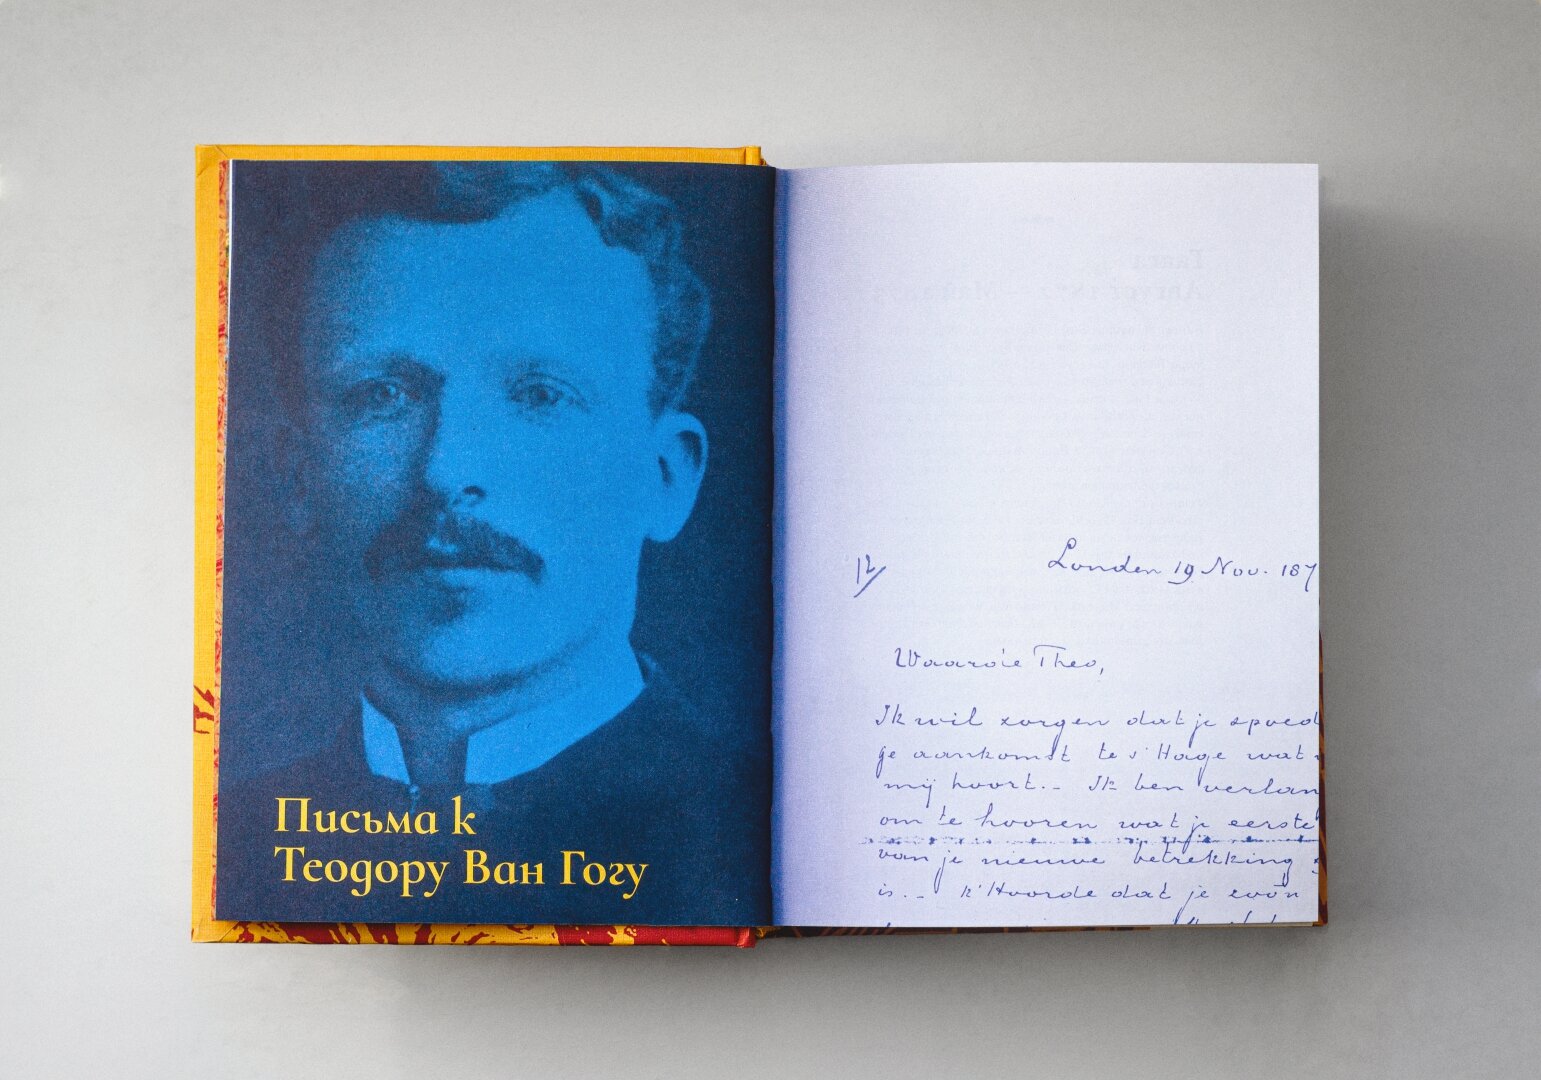 Письма к
Теодору Ван Гогу
12/
London 19 Nov. 187
Waarde Theo,
Ik wil zorgen dat je spoed
ge aankomst te s'Hage wat
mij hoort.- Ik ben verlan
om te hooren wat je eerste
van je nieuwe betrekking
is.- k'Hoorde dat je zoo'n